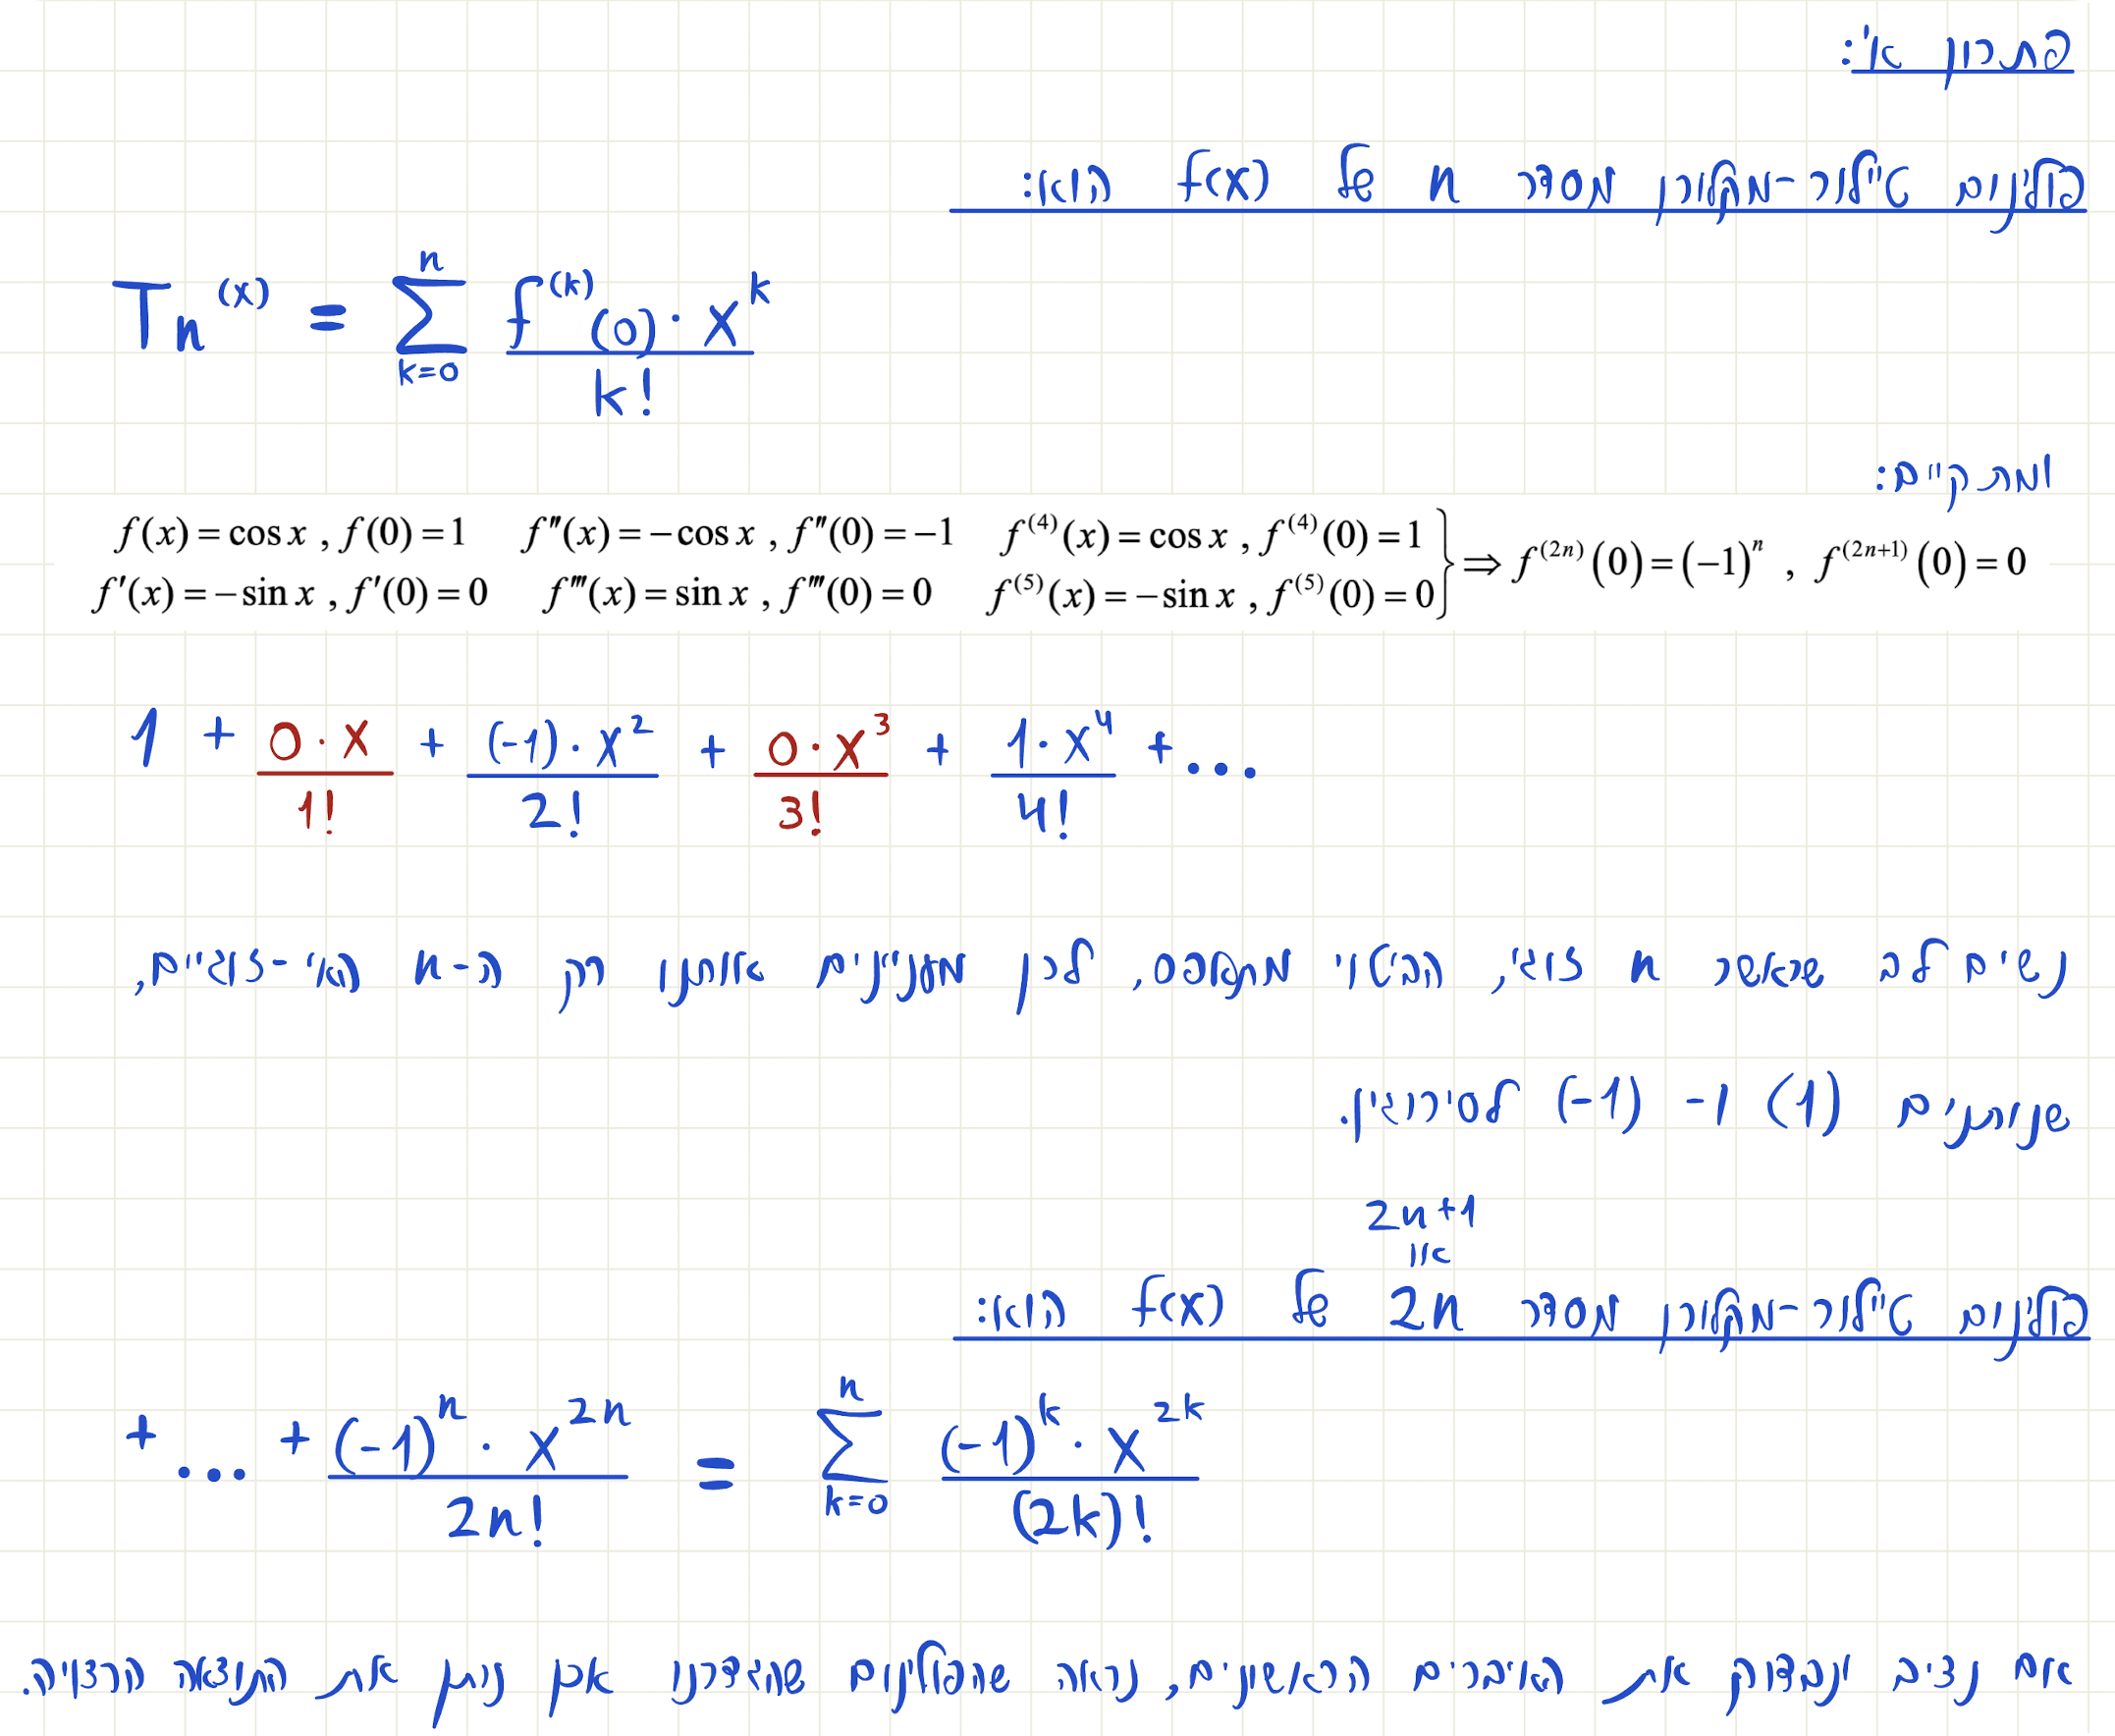 פתרון א':
פולינום טיילור-מקלורן מסדר n של f(x) הוא:
Tn(x) = Σ_{k=0}^{n} f^(k)(0)·x^k / k!
ומתקיים:
f(x) = cos x , f(0) = 1   f″(x) = −cos x , f″(0) = −1   f^(4)(x) = cos x , f^(4)(0) = 1
f′(x) = −sin x , f′(0) = 0   f‴(x) = sin x , f‴(0) = 0   f^(5)(x) = −sin x , f^(5)(0) = 0
} ⇒ f^(2n)(0) = (−1)^n , f^(2n+1)(0) = 0
1 + 0·x/1! + (-1)·x^2/2! + 0·x^3/3! + 1·x^4/4! + ...
נשים לב שכאשר n זוגי, הביטוי מתאפס, לכן מעניינים אותנו רק ה-n האי-זוגיים,
שנותנים (1) ו- (-1) לסירוגין.
2n+1
או
פולינום טיילור-מקלורן מסדר 2n של f(x) הוא:
+ ... + (-1)^n · x^2n / 2n! = Σ_{k=0}^{n} (-1)^k · x^2k / (2k)!
אם נציב ונבדוק את האיברים הראשונים, נראה שהפולינום שהגדרנו אכן נותן את התוצאה הרצויה.